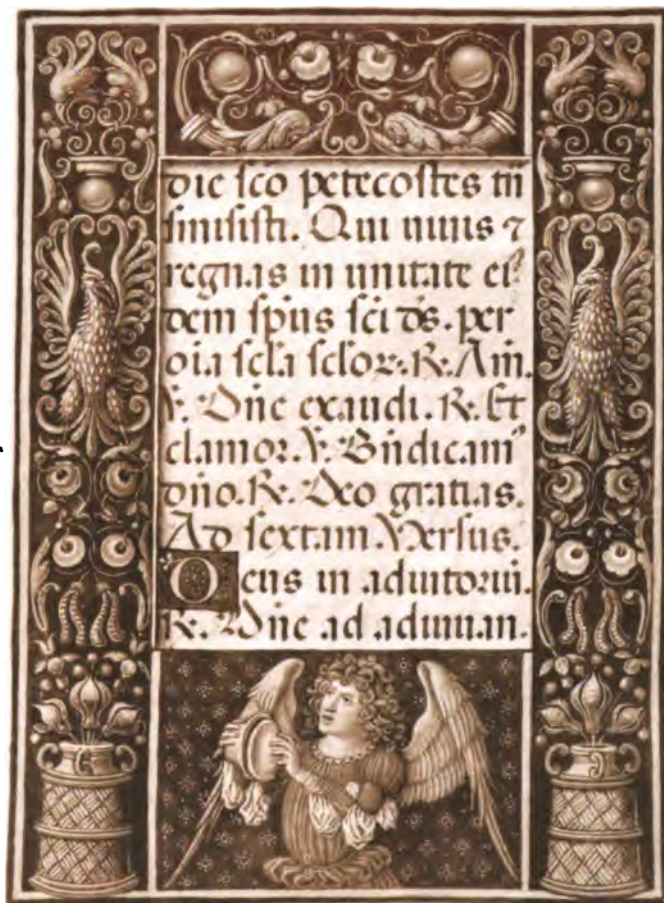 die sco petecostes tii
smisisti. Qui uiuis ⁊
regnas in unitate eiꝰ
dem spūs sci ds̄. per
oīa scla sclor. R. Am̄.
V. Dn̄e exaudi. R. Et
clamor. V. Bn̄dicamꝰ
dn̄o. R. Deo gratias.
Ad sextam. Versus.
Deus in adiutoriū.
R. Dn̄e ad adiuuan.